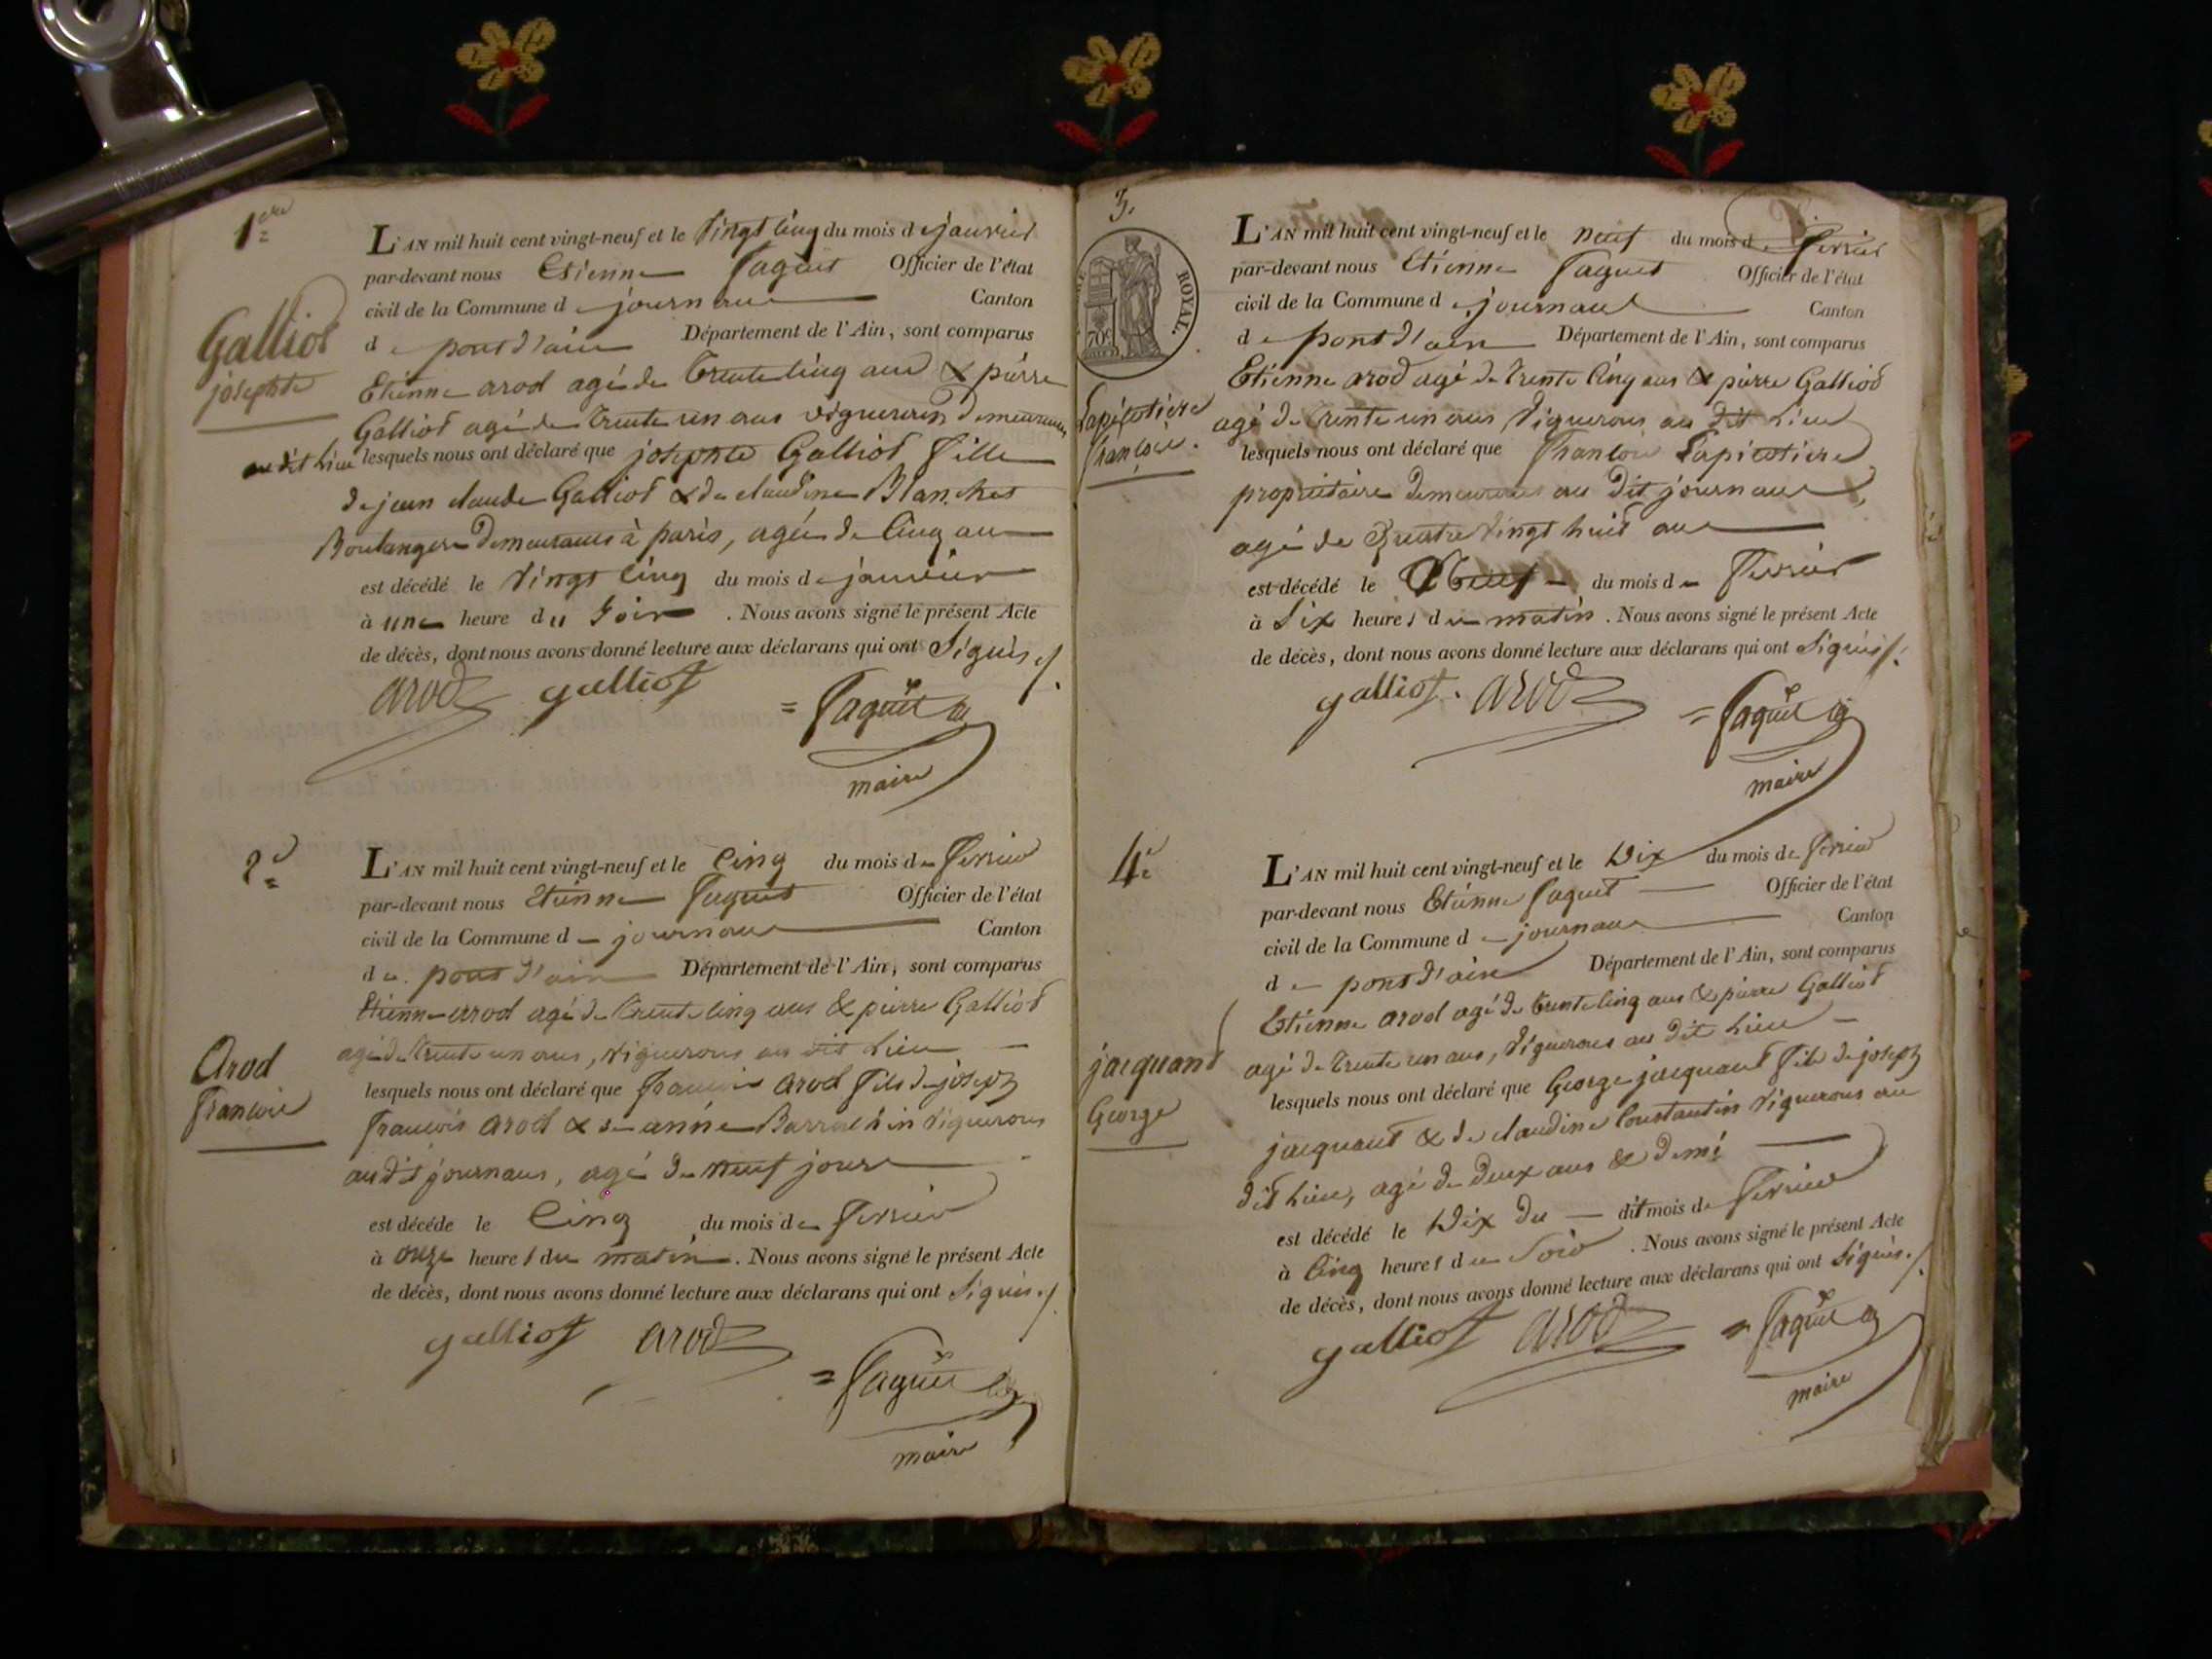 1ere
Galliot
josephte
L'AN mil huit cent vingt-neuf et le vingt cinq du mois de janvier
par-devant nous Etienne Faguet Officier de l'état
civil de la Commune de journans Canton
de pont d'ain Département de l'Ain, sont comparus
Etienne arod agé de trente cinq ans & pierre
Galliot agé de trente un ans vignerons demeurants
au dit lieu lesquels nous ont déclaré que josephte Galliot fille
de jean claude Galliot & de claudine Blanchet
Boulangers demeurants à paris, agée de cinq ans
est décédé le vingt cinq du mois de janvier
à une heure du soir . Nous avons signé le présent Acte
de décès, dont nous avons donné lecture aux déclarans qui ont signés ./.
arod galliot = faguet
maire
2e
Arod
françois
L'AN mil huit cent vingt-neuf et le cinq du mois de fevrier
par-devant nous Etienne Faguet Officier de l'état
civil de la Commune de journans Canton
de pont d'ain Département de l'Ain, sont comparus
Etienne arod agé de trente cinq ans & pierre Galliot
agé de trente un ans, vignerons au dit lieu
lesquels nous ont déclaré que françois arod fils de joseph
françois arod & de anne vignerons
au dit journans, agé de neuf jours
est décédé le cinq du mois de fevrier
à onze heures du matin . Nous avons signé le présent Acte
de décès, dont nous avons donné lecture aux déclarans qui ont signés ./.
galliot arod = faguet
maire
3.
ROYAL.
70c
Lapicotiere
françois.
L'AN mil huit cent vingt-neuf et le neuf du mois de fevrier
par-devant nous Etienne Faguet Officier de l'état
civil de la Commune de journans Canton
de pont d'ain Département de l'Ain, sont comparus
Etienne arod agé de trente cinq ans & pierre Galliot
agé de trente un ans, vignerons au dit lieu
lesquels nous ont déclaré que françois Lapicotiere
propriétaire demeurant au dit journans,
agé de quatre vingt huit ans
est décédé le neuf du mois de fevrier
à six heures du matin . Nous avons signé le présent Acte
de décès, dont nous avons donné lecture aux déclarans qui ont signés ./.
galliot. arod = faguet
maire
4e
jacquand
George
L'AN mil huit cent vingt-neuf et le dix du mois de fevrier
par-devant nous Etienne Faguet Officier de l'état
civil de la Commune de journans Canton
de pont d'ain Département de l'Ain, sont comparus
Etienne arod agé de trente cinq ans & pierre Galliot
agé de trente un ans, vignerons au dit lieu
lesquels nous ont déclaré que George jacquand fils de joseph
jacquand & de claudine Constantin vignerons au
dit lieu, agé de deux ans & demi
est décédé le dix du dit mois de fevrier
à cinq heures du soir . Nous avons signé le présent Acte
de décès, dont nous avons donné lecture aux déclarans qui ont signés ./.
galliot arod = faguet
maire